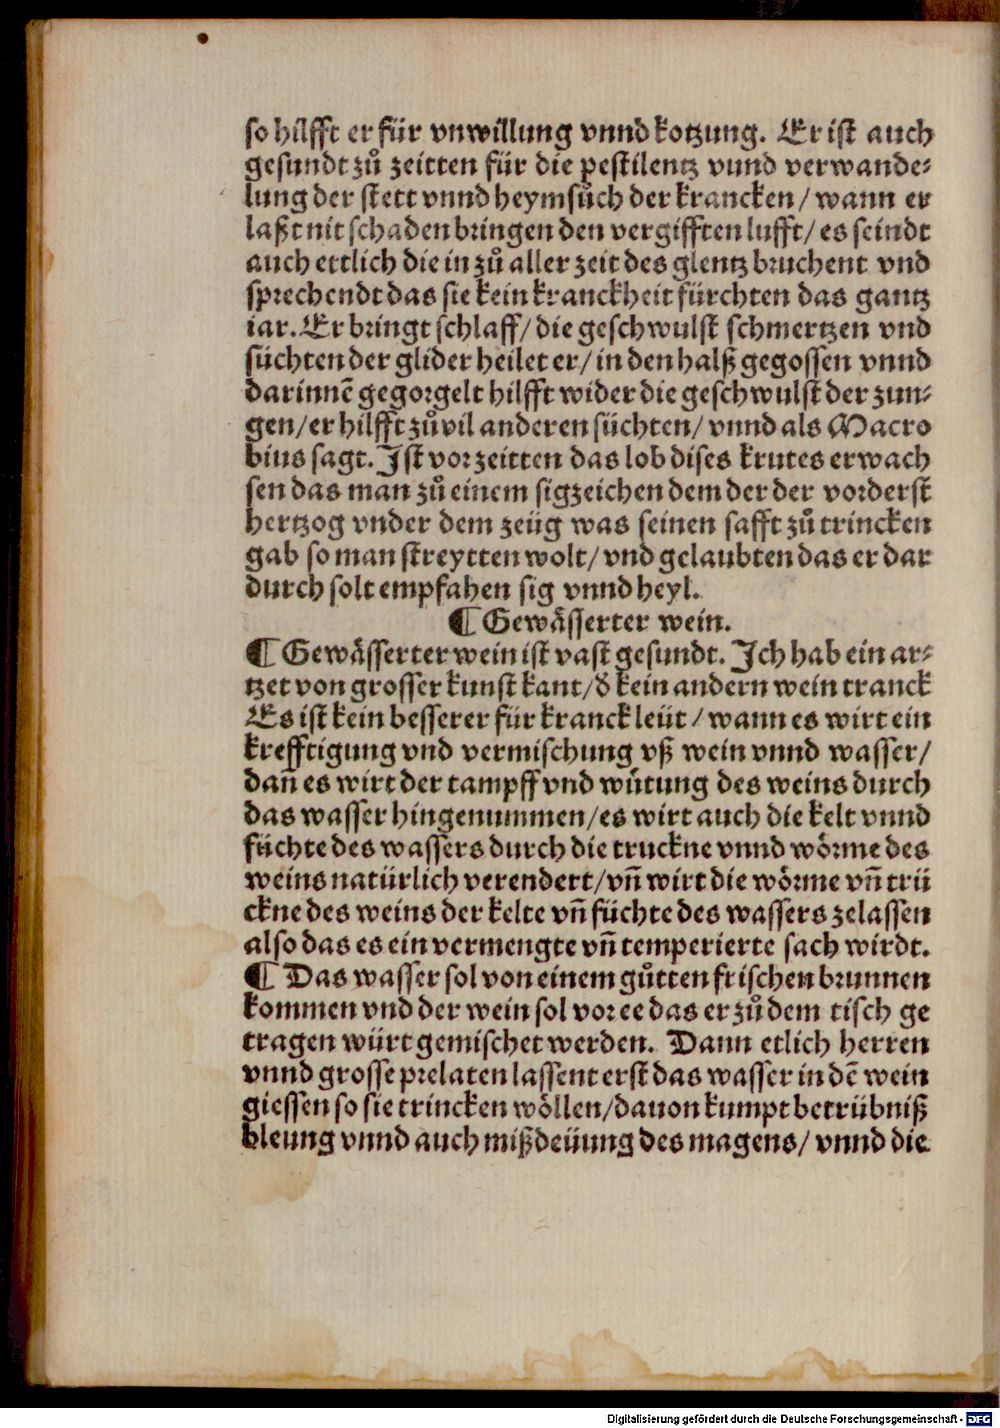 so hilfft er für vnwillung vnnd kotzung. Er ist auch
gesundt zů zeitten für die pestilentz vund verwande⸗
lung der stett vnnd heymsůch der krancken / wann er
laßt nit schaden bringen den vergifften lufft / es seindt
auch ettlich die in zů aller zeit des glentz bruchent vnd
sprechendt das sie kein kranckheit fürchten das gantz
iar. Er bringt schlaff / die geschwulst schmertzen vnd
süchten der glider heilet er / in den halß gegossen vnnd
darinnē gegorgelt hilfft wider die geschwulst der zun⸗
gen / er hilfft zů vil anderen süchten / vnnd als Macro
bius sagt. Ist vorzeitten das lob dises krutes erwach
sen das man zů einem sigzeichen dem der der vorderst
hertzog vnder dem zeüg was seinen safft zů trincken
gab so man streytten wolt / vnd gelaubten das er dar
durch solt empfahen sig vnnd heyl.
¶ Gewässerter wein.
¶ Gewässerter wein ist vast gesundt. Ich hab ein ar⸗
tzet von grosser kunst kant / ð kein andern wein tranck
Es ist kein besserer für kranck leüt / wann es wirt ein
krefftigung vnd vermischung vß wein vnnd wasser /
dañ es wirt der tampff vnd wůtung des weins durch
das wasser hingenummen / es wirt auch die kelt vnnd
füchte des wassers durch die truckne vnnd wörme des
weins natürlich verendert / vñ wirt die wörme vñ trü
ckne des weins der kelte vñ füchte des wassers zelassen
also das es ein vermengte vñ temperierte sach wirdt.
¶ Das wasser sol von einem gůtten frischen brunnen
kommen vnd der wein sol vor ee das er zů dem tisch ge
tragen würt gemischet werden. Dann etlich herren
vnnd grosse prelaten lassent erst das wasser in dē wein
giessen so sie trincken wöllen / dauon kumpt betrübniß
bleung vnnd auch mißdeüung des magens / vnnd die
Digitalisierung gefördert durch die Deutsche Forschungsgemeinschaft - DFG